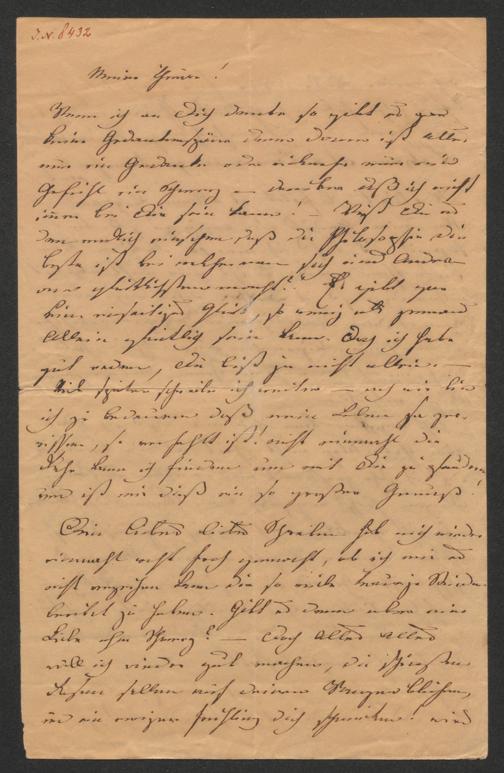 J.N. 8432
Meine Theure!
Wenn ich an Dich denke so gibt es gar
keine Gedankenspäne denn dann ist alles
nur ein Gedanke oder vielmehr nur ein
Gefühl ein Schmerz — darüber daß ich nicht
immer bei Dir sein kann! — Weißt Du es
denn endlich daß die Philosophie die
beste ist bei welcher man sich und Andre
am glücklichsten macht? Es gibt gar
kein einseitiges Glück, so wenig als jemand
Allein glücklich sein kann. Doch ich habe
gut reden, Du bist ja nicht allein. —
Viel später schreibe ich weiter — ach wie bin
ich zu bedauern daß mein Leben so zer-
rissen, so verfehlt ist! nicht einmahl die
Ruhe kann ich finden um mit Dir zu plaudern
und ist mir dieß ein so großer Genuß!
Dein liebes liebes Schreiben hat mich wieder
einmahl recht froh gemacht, ob ich mir es
nicht verzeihen kann Dir so viele traurige Stunden
bereitet zu haben. Gibt es denn aber eine
Liebe ohne Schmerz? — Doch Alles Alles
will ich wieder gut machen, die schönsten
Rosen sollen auf Deinen Wangen blühen,
und ein ewiger Frühling Dich schmücken! wird